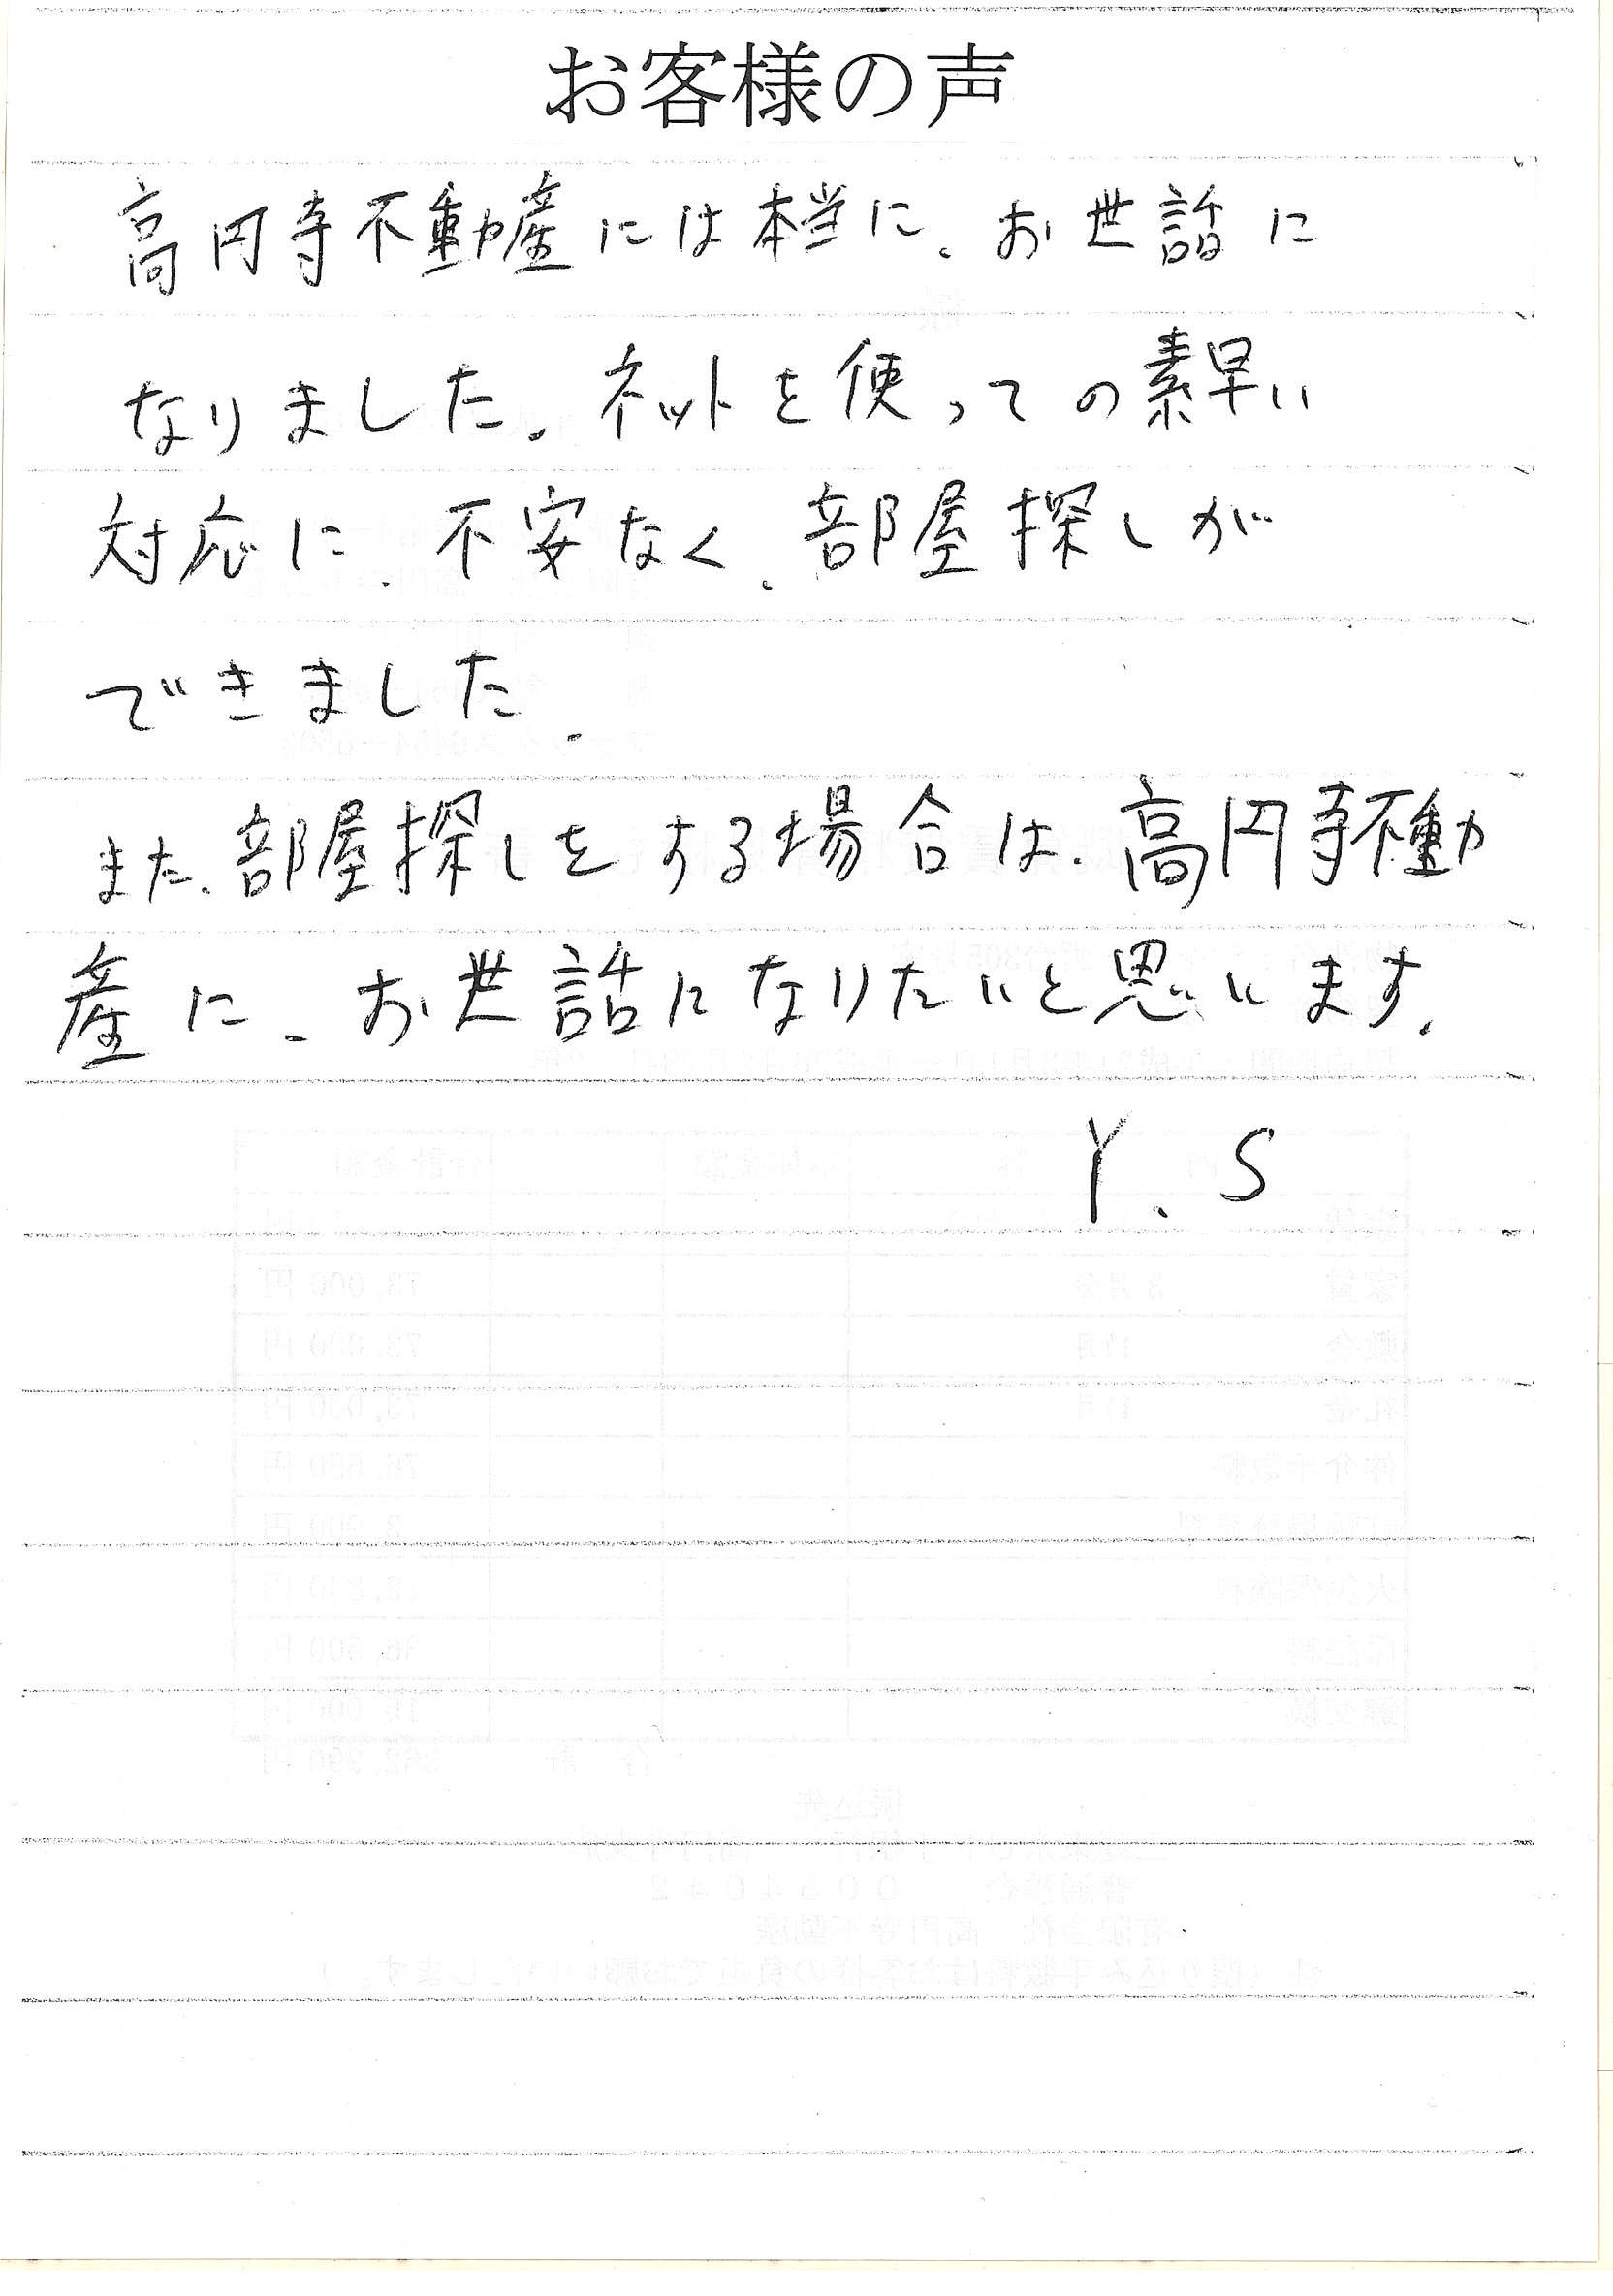 お客様の声
高円寺不動産には本当に、お世話に
なりました。ネットを使っての素早い
対応に、不安なく、部屋探しが
できました。
また、部屋探しをする場合は、高円寺不動
産に、お世話になりたいと思います。
Y.S